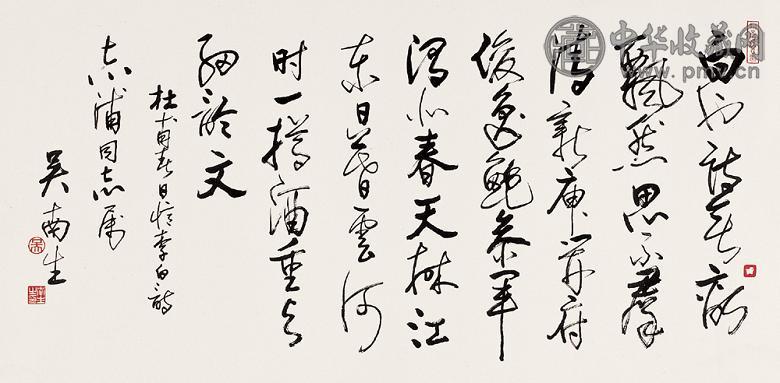 白也诗无敌
飘然思不羣
清新庾开府
俊逸鲍参军
渭北春天树江
东日暮雲河
时一樽酒重与
细论文
杜甫春日忆李白诗
志浦同志属
吴南生
中华收藏网